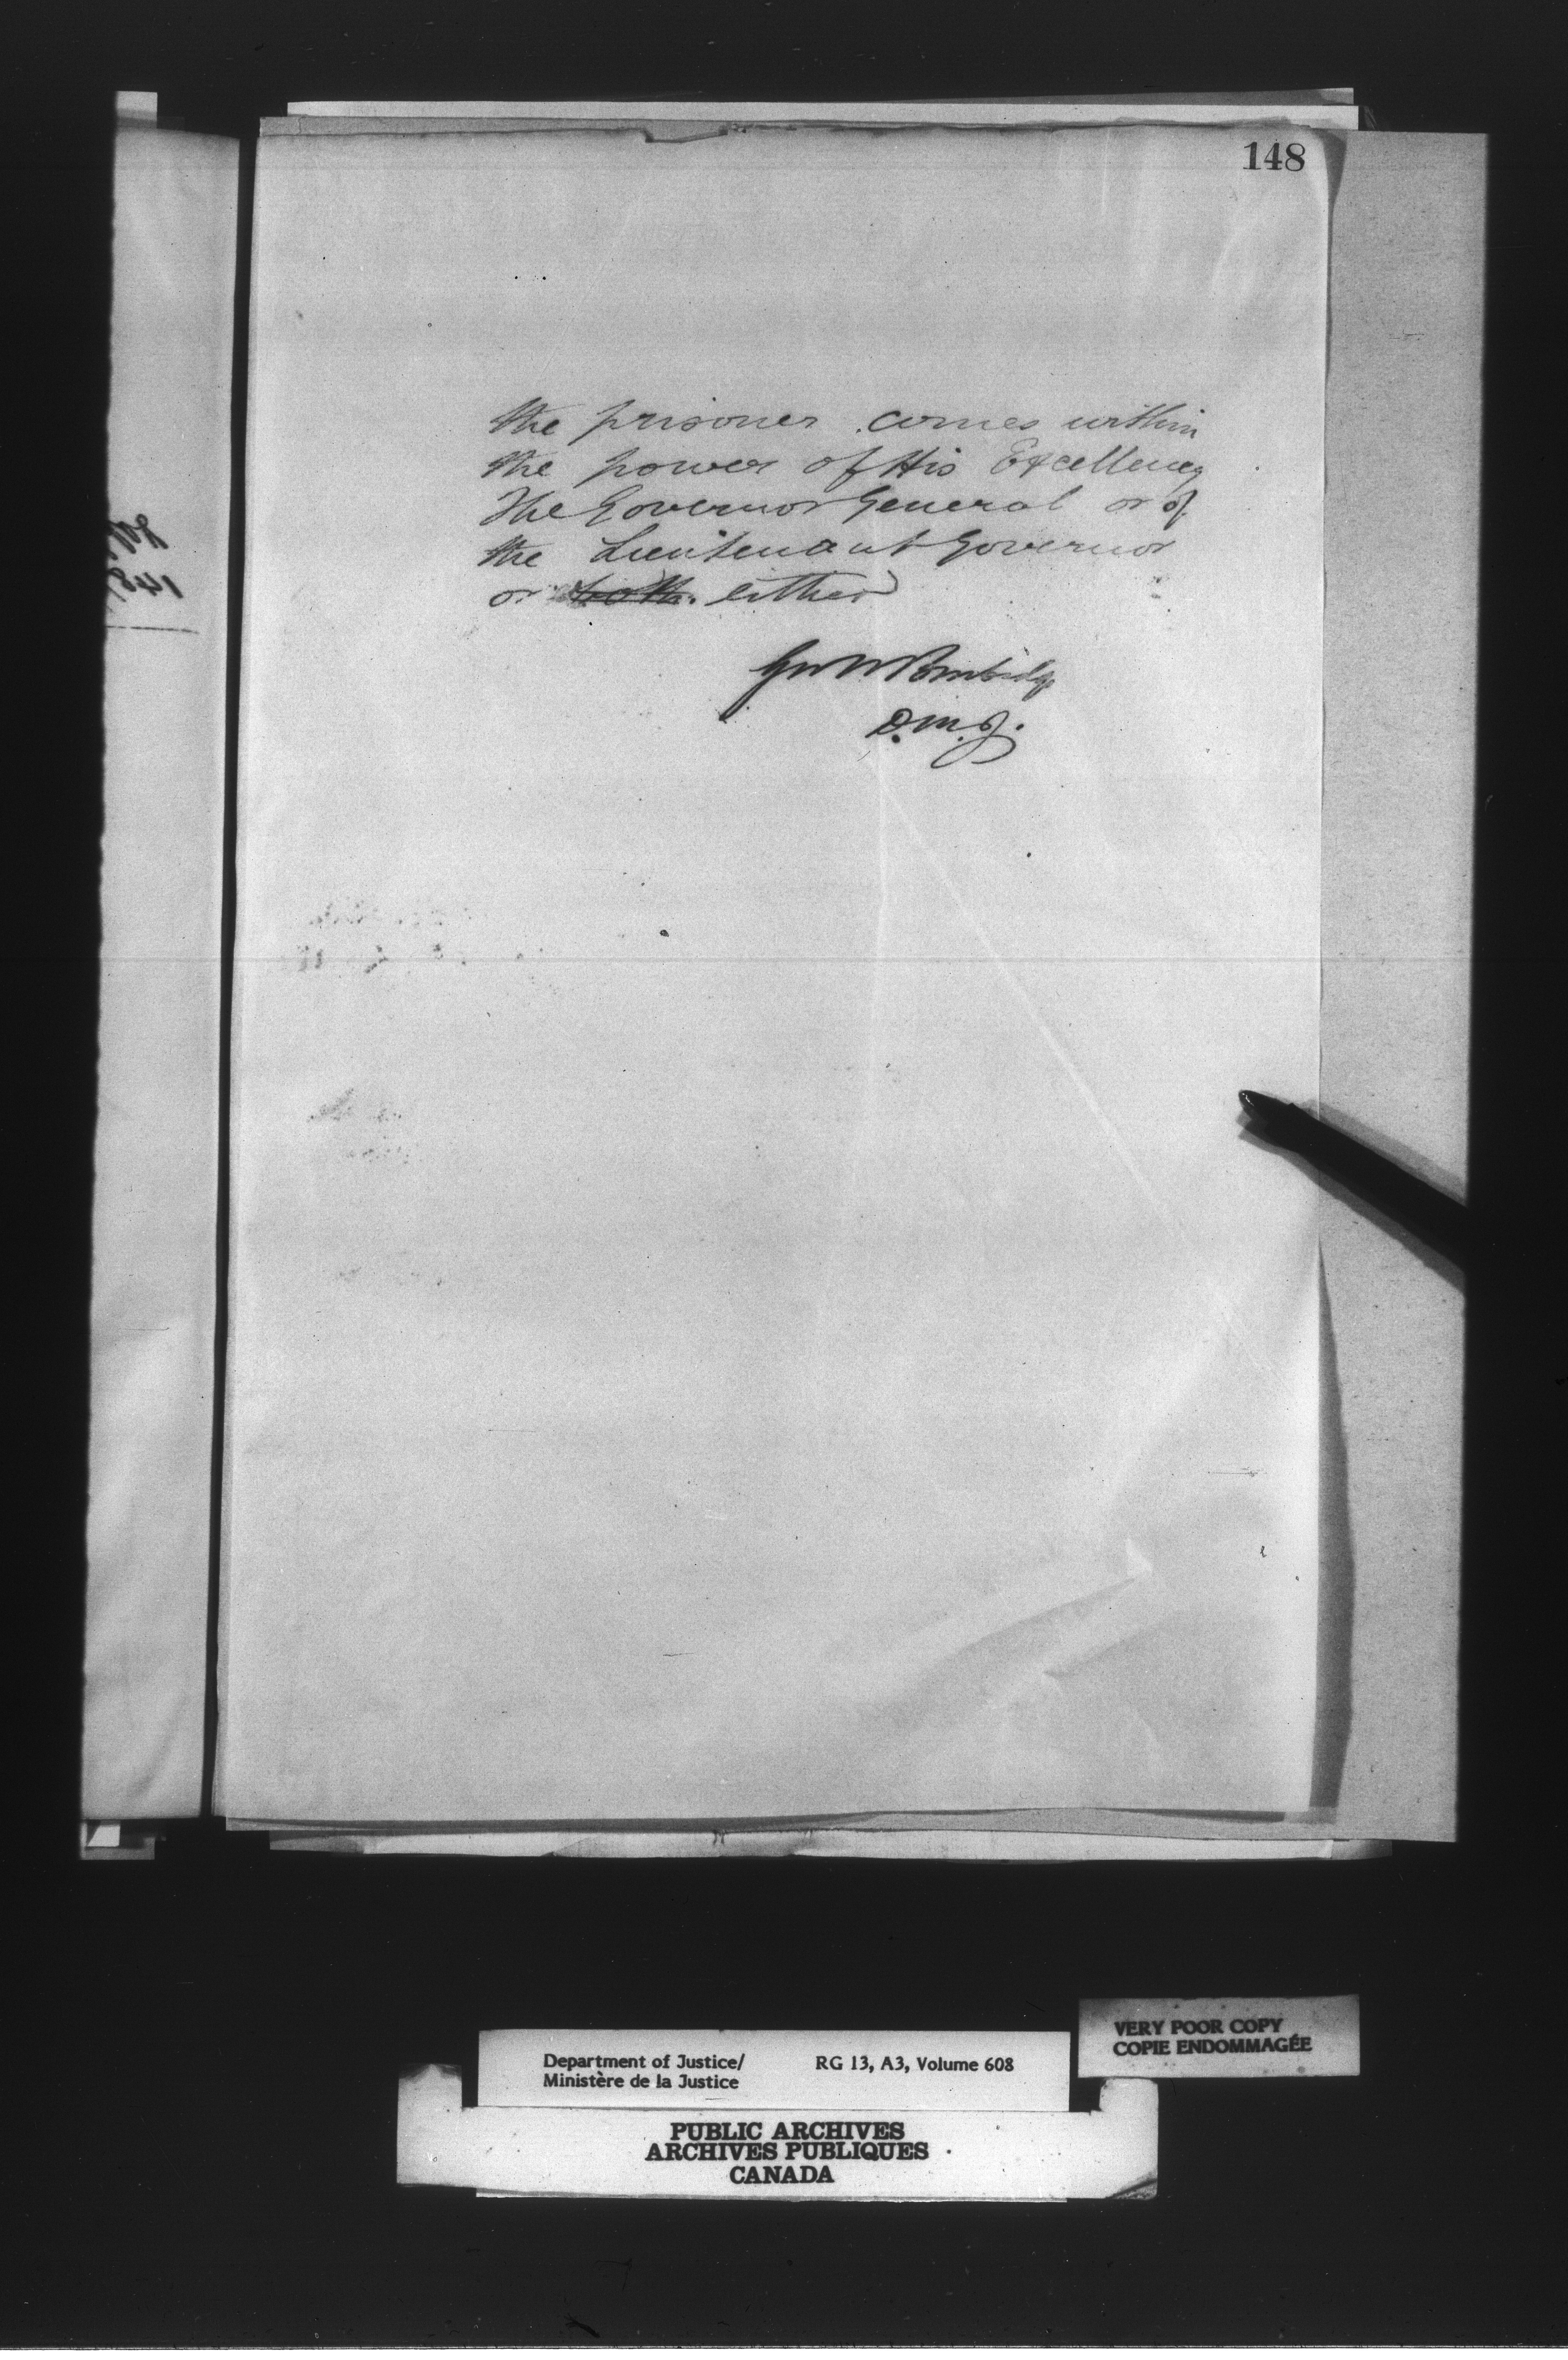 148
the prisoner comes within
the power of His Excellency
The Governor General or of
the Lieutenant Governor
or both. either
Geo W Burbidge
D.M.J.
Department of Justice/ RG 13, A3, Volume 608
Ministère de la Justice
VERY POOR COPY
COPIE ENDOMMAGÉE
PUBLIC ARCHIVES
ARCHIVES PUBLIQUES
CANADA